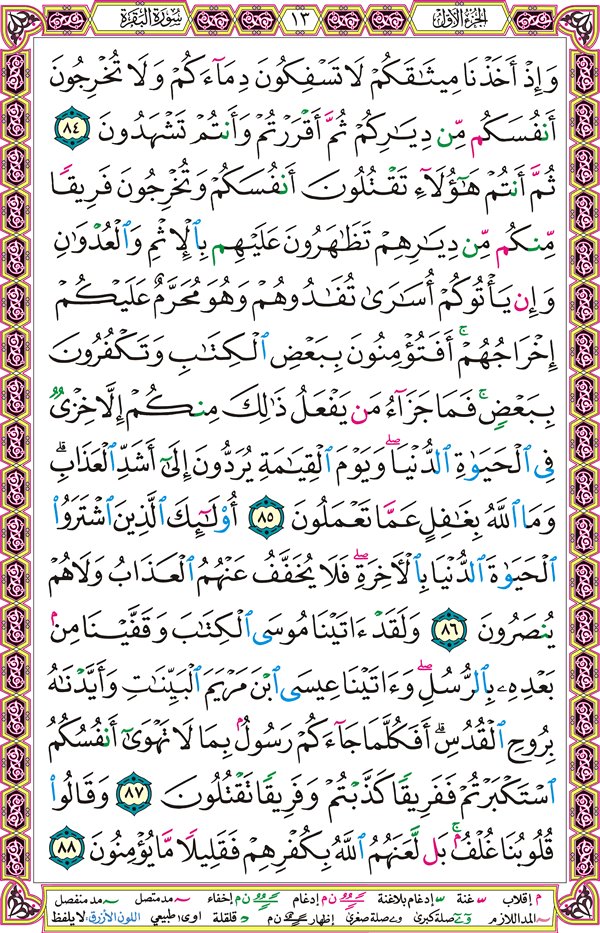 الجزء الأول ١٣ سورة البقرة
وَإِذْ أَخَذْنَا مِيثَـٰقَكُمْ لَا تَسْفِكُونَ دِمَآءَكُمْ وَلَا تُخْرِجُونَ
أَنفُسَكُم مِّن دِيَـٰرِكُمْ ثُمَّ أَقْرَرْتُمْ وَأَنتُمْ تَشْهَدُونَ ٨٤
ثُمَّ أَنتُمْ هَـٰٓؤُلَآءِ تَقْتُلُونَ أَنفُسَكُمْ وَتُخْرِجُونَ فَرِيقًا
مِّنكُم مِّن دِيَـٰرِهِمْ تَظَـٰهَرُونَ عَلَيْهِم بِٱلْإِثْمِ وَٱلْعُدْوَٰنِ
وَإِن يَأْتُوكُمْ أُسَـٰرَىٰ تُفَـٰدُوهُمْ وَهُوَ مُحَرَّمٌ عَلَيْكُمْ
إِخْرَاجُهُمْ ۚ أَفَتُؤْمِنُونَ بِبَعْضِ ٱلْكِتَـٰبِ وَتَكْفُرُونَ
بِبَعْضٍ ۚ فَمَا جَزَآءُ مَن يَفْعَلُ ذَٰلِكَ مِنكُمْ إِلَّا خِزْىٌ
فِى ٱلْحَيَوٰةِ ٱلدُّنْيَا ۖ وَيَوْمَ ٱلْقِيَـٰمَةِ يُرَدُّونَ إِلَىٰٓ أَشَدِّ ٱلْعَذَابِ ۗ
وَمَا ٱللَّهُ بِغَـٰفِلٍ عَمَّا تَعْمَلُونَ ٨٥ أُو۟لَـٰٓئِكَ ٱلَّذِينَ ٱشْتَرَوُا۟
ٱلْحَيَوٰةَ ٱلدُّنْيَا بِٱلْـَٔاخِرَةِ ۖ فَلَا يُخَفَّفُ عَنْهُمُ ٱلْعَذَابُ وَلَا هُمْ
يُنصَرُونَ ٨٦ وَلَقَدْ ءَاتَيْنَا مُوسَى ٱلْكِتَـٰبَ وَقَفَّيْنَا مِنۢ
بَعْدِهِۦ بِٱلرُّسُلِ ۖ وَءَاتَيْنَا عِيسَى ٱبْنَ مَرْيَمَ ٱلْبَيِّنَـٰتِ وَأَيَّدْنَـٰهُ
بِرُوحِ ٱلْقُدُسِ ۗ أَفَكُلَّمَا جَآءَكُمْ رَسُولٌۢ بِمَا لَا تَهْوَىٰٓ أَنفُسُكُمُ
ٱسْتَكْبَرْتُمْ فَفَرِيقًا كَذَّبْتُمْ وَفَرِيقًا تَقْتُلُونَ ٨٧ وَقَالُوا۟
قُلُوبُنَا غُلْفٌۢ ۚ بَل لَّعَنَهُمُ ٱللَّهُ بِكُفْرِهِمْ فَقَلِيلًا مَّا يُؤْمِنُونَ ٨٨
م إقلاب غنة إدغام بلاغنة ن م إدغام ن م إخفاء مد متصل مد منفصل
المد اللازم صلة كبرى صلة صغرى إظهار ن م قلقلة اوى: طبيعي اللون الأزرق: لا يلفظ